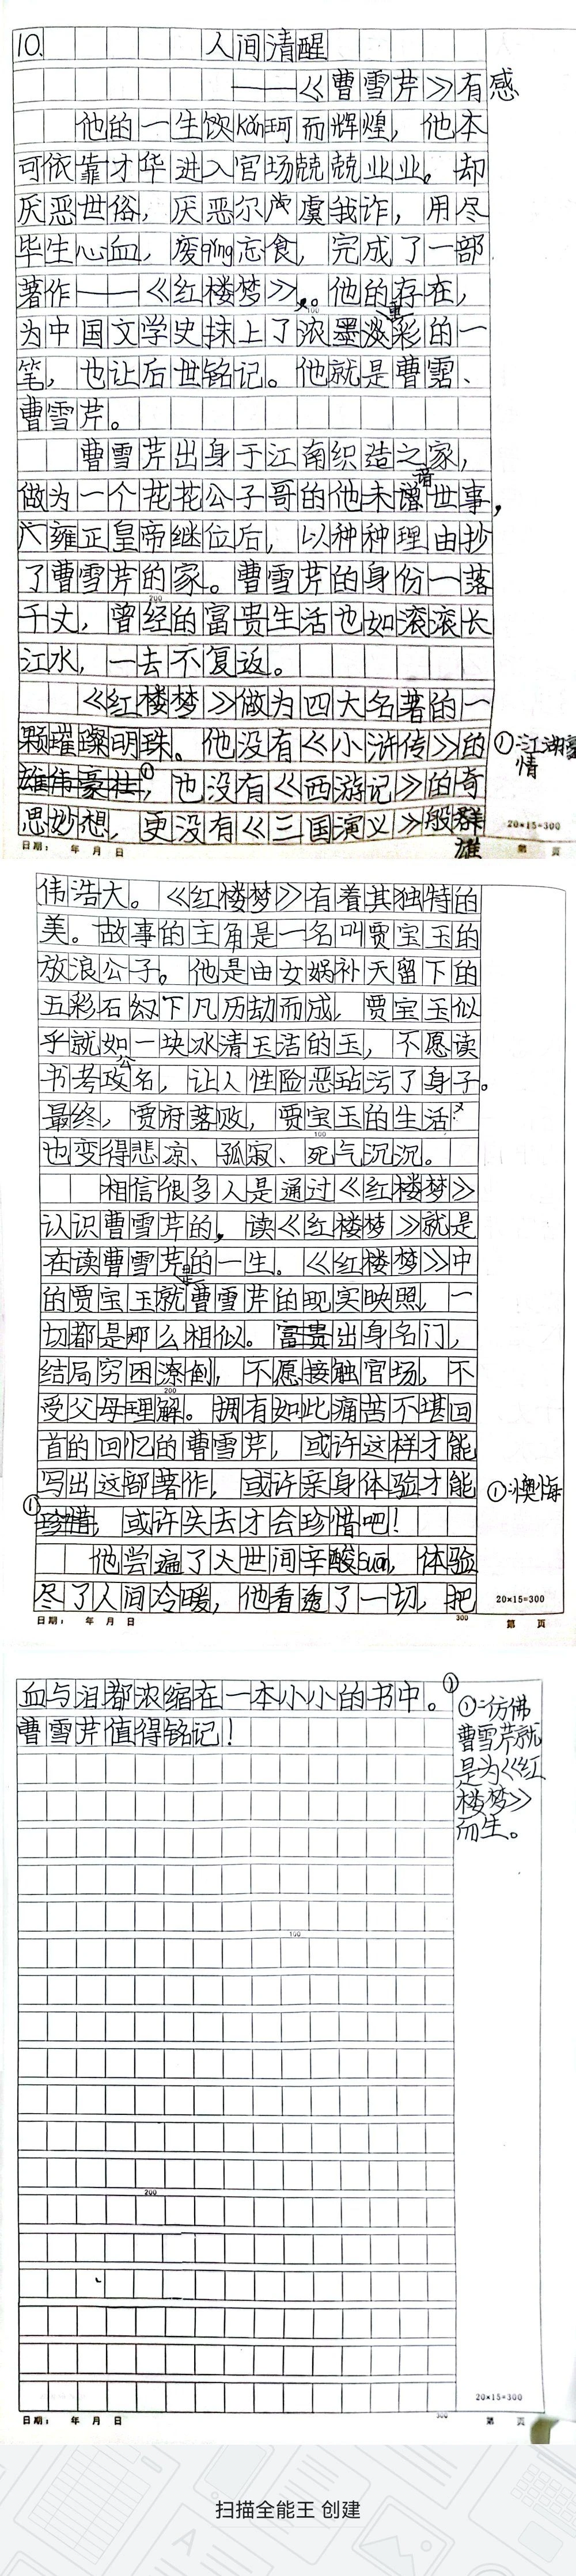 10. 人间清醒
——《曹雪芹》有感
他的一生饮kǎn坷而辉煌，他本
可依靠才华进入官场兢兢业业。却
厌恶世俗，厌恶尔虞我诈，用尽
毕生心血，废qǐng忘食，完成了一部
著作——《红楼梦》。他的存在，
为中国文学史抹上了浓墨重彩的一
笔，也让后世铭记。他就是曹霑、
曹雪芹。
曹雪芹出身于江南织造之家，
做为一个花花公子哥的他未谙世事，
雍正皇帝继位后，以种种理由抄
了曹雪芹的家。曹雪芹的身份一落
千丈，曾经的富贵生活也如滚滚长
江水，一去不复返。
《红楼梦》做为四大名著的一
颗璀璨明珠。他没有《水浒传》的
雄伟豪壮①，也没有《西游记》的奇
①：江湖豪情
思妙想，更没有《三国演义》般群雄
伟浩大。《红楼梦》有着其独特的
美。故事的主角是一名叫贾宝玉的
放浪公子。他是由女娲补天留下的
五彩石幻下凡历劫而成，贾宝玉似
乎就如一块冰清玉洁的玉，不愿读
书考功名，让人性险恶玷污了身子。
最终，贾府落败，贾宝玉的生活
也变得悲凉、孤寂、死气沉沉。
相信很多人是通过《红楼梦》
认识曹雪芹的，读《红楼梦》就是
在读曹雪芹的一生。《红楼梦》中
的贾宝玉就是曹雪芹的现实映照，一
切都是那么相似。富贵出身名门，
结局穷困潦倒，不愿接触官场，不
受父母理解。拥有如此痛苦不堪回
首的回忆的曹雪芹，或许这样才能
写出这部著作，或许亲身体验才能
①珍惜，或许失去才会珍惜吧！
①：懊悔
他尝遍了人世间辛酸suān，体验
尽了人间冷暖，他看透了一切，把
血与泪都浓缩在一本小小的书中。①
曹雪芹值得铭记！
①：仿佛
曹雪芹就
是为《红
楼梦》
而生。
100
200
20×15=300
日期： 年 月 日
第 页
100
200
300
20×15=300
日期： 年 月 日
第 页
100
200
300
20×15=300
日期： 年 月 日
第 页
扫描全能王 创建